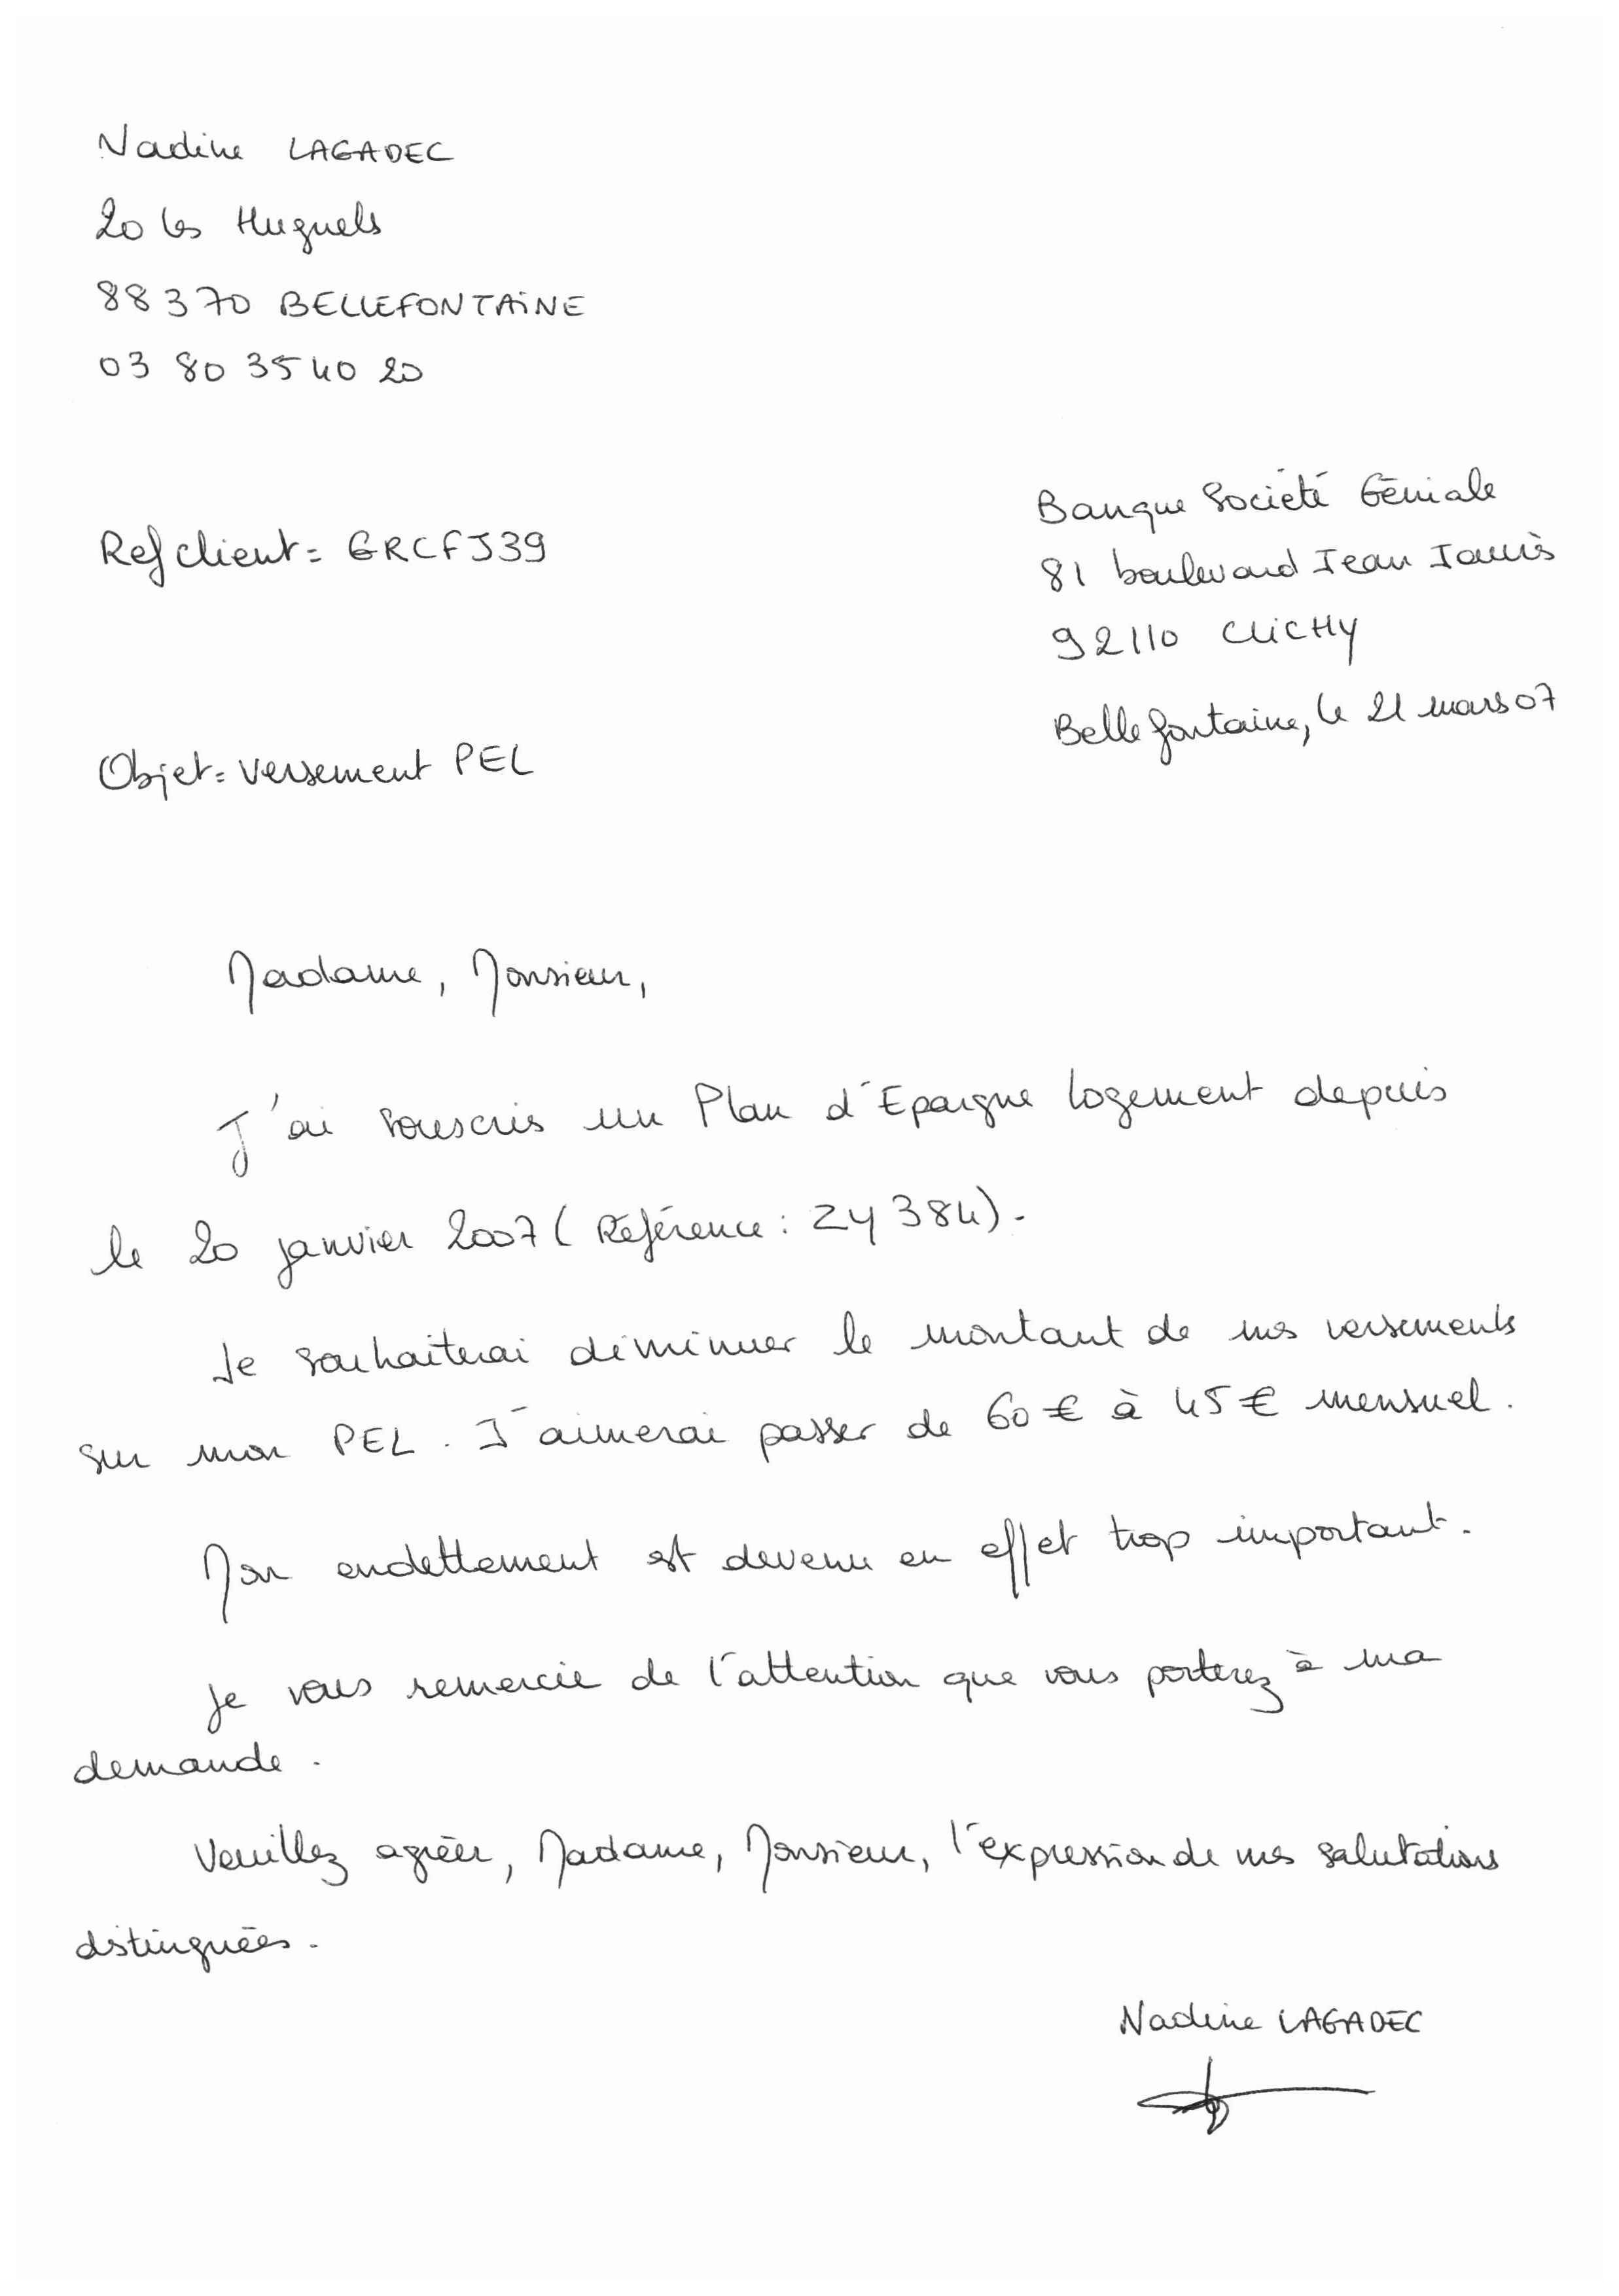 Nadine LAGADEC
20 les Huguels
88370 BELLEFONTAINE
03 80 35 40 20
Banque Société Géniale
Ref client = GRCFJ39
81 boulevard Jean Jaurès
92110 CLICHY
Bellefontaine, le 21 mars 07
Objet = versement PEL
Madame, Monsieur,
J'ai souscris un Plan d'Epargne logement depuis
le 20 janvier 2007 (Référence : ZY384).
Je souhaiterai diminuer le montant de mes versements
sur mon PEL. J'aimerai passer de 60€ à 45€ mensuel.
Mon endettement est devenu en effet trop important.
Je vous remercie de l'attention que vous porterez à ma
demande.
Veuillez agréer, Madame, Monsieur, l'expression de mes salutations
distinguées.
Nadine LAGADEC